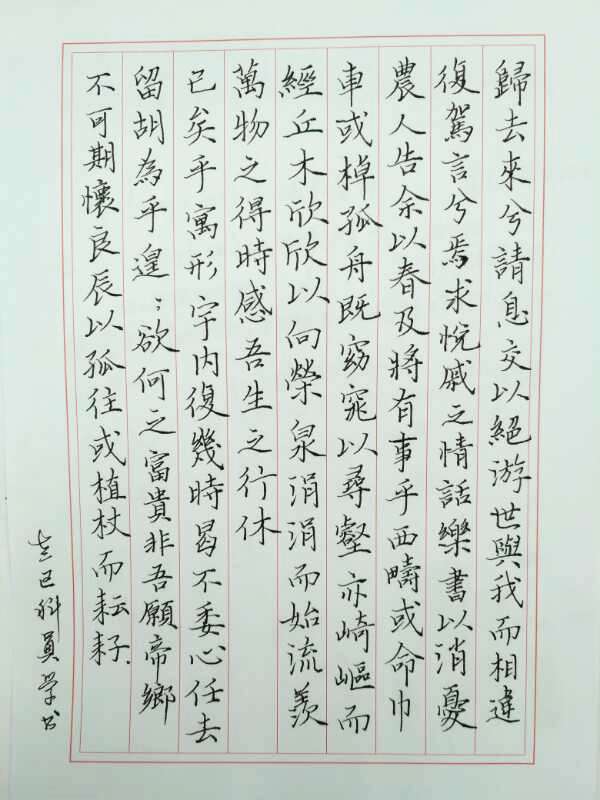 歸去來兮請息交以絕游世與我而相違
復駕言兮焉求悅戚之情話樂書以消憂
農人告余以春及將有事乎西疇或命巾
車或棹孤舟既窈窕以尋壑亦崎嶇而
經丘木欣欣以向榮泉涓涓而始流羨
萬物之得時感吾生之行休
已矣乎寓形宇内復幾時曷不委心任去
留胡為乎遑;欲何之富貴非吾願帝鄉
不可期懷良辰以孤往或植杖而耘耔
科員學書